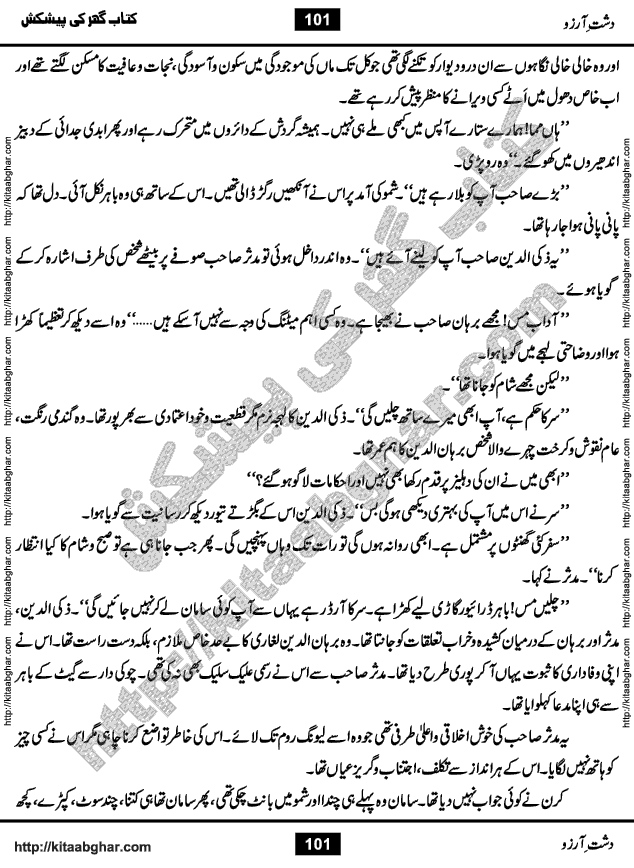 دشتِ آرزو 101 کتاب گھر کی پیشکش
اور وہ خالی خالی نگاہوں سے ان در و دیوار کو تکنے لگی تھی جو کل تک ماں کی موجودگی میں سکون و آسودگی، نجات و عافیت کا مسکن لگتے تھے اور
اب خاص دھول میں اَٹے کسی ویرانے کا منظر پیش کر رہے تھے۔
’’ہاں مما! ہمارے ستارے آپس میں کبھی ملے ہی نہیں۔ ہمیشہ گردش کے دائروں میں متحرک رہے اور پھر ابدی جدائی کے دبیز
اندھیروں میں کھو گئے۔‘‘ وہ رو پڑی۔
’’بڑے صاحب آپ کو بلا رہے ہیں‘‘۔ شمو کی آمد پر اس نے آنکھیں رگڑ ڈالی تھیں۔ اس کے ساتھ ہی وہ باہر نکل آئی۔ دل تھا کہ
پانی پانی ہوا جا رہا تھا۔
’’یہ ذکی الدین صاحب آپ کو لینے آئے ہیں‘‘۔ وہ اندر داخل ہوئی تو مدثر صاحب صوفے پر بیٹھے شخص کی طرف اشارہ کر کے
گویا ہوئے۔
’’آداب مس! مجھے برہان صاحب نے بھیجا ہے۔ وہ کسی اہم میٹنگ کی وجہ سے نہیں آ سکے ہیں......‘‘ وہ اسے دیکھ کر تعظیماً کھڑا
ہوا اور وضاحتی لہجے میں گویا ہوا۔
’’لیکن مجھے شام کو جانا تھا‘‘۔
’’سر کا حکم ہے، آپ ابھی میرے ساتھ چلیں گی‘‘۔ ذکی الدین کا لہجہ نرم مگر قطعیت و خود اعتمادی سے بھرپور تھا۔ وہ گندمی رنگت،
عام نقوش و کرخت چہرے والا شخص برہان الدین کا ہم عمر تھا۔
’’ابھی میں نے ان کی دہلیز پر قدم رکھا بھی نہیں اور احکامات لاگو ہو گئے؟‘‘
’’سر نے اس میں آپ کی بہتری دیکھی ہو گی بس‘‘۔ ذکی الدین اس کے بگڑتے تیور دیکھ کر رسانیت سے گویا ہوا۔
’’سفر کئی گھنٹوں پر مشتمل ہے۔ ابھی روانہ ہوں گی تو رات تک وہاں پہنچیں گی۔ پھر جب جانا ہی ہے تو صبح و شام کا کیا انتظار
کرنا‘‘۔ مدثر نے کہا۔
’’چلیں مس! باہر ڈرائیور گاڑی لیے کھڑا ہے۔ سر کا آرڈر ہے یہاں سے آپ کوئی سامان لے کر نہیں جائیں گی‘‘۔ ذکی الدین،
مدثر اور برہان کے درمیان کشیدہ و خراب تعلقات کو جانتا تھا۔ وہ برہان الدین لغاری کا بے حد خاص ملازم، بلکہ دست راست تھا۔ اس نے
اپنی وفاداری کا ثبوت یہاں آ کر پوری طرح دیا تھا۔ مدثر صاحب سے اس نے رسمی علیک سلیک بھی نہ کی تھی۔ چوکی دار سے گیٹ کے باہر
سے ہی اپنا مدعا کہلوایا تھا۔
یہ مدثر صاحب کی خوش اخلاقی و اعلیٰ ظرفی تھی جو وہ اسے لیونگ روم تک لائے۔ اس کی خاطر تواضع کرنا چاہی مگر اس نے کسی چیز
کو ہاتھ نہیں لگایا۔ اس کے ہر انداز سے تکلف، اجتناب و گریز عیاں تھا۔
کرن نے کوئی جواب نہیں دیا تھا۔ سامان وہ پہلے ہی چندا اور شمو میں بانٹ چکی تھی، پھر سامان تھا ہی کتنا، چند سوٹ، کپڑے، کچھ
http://kitaabghar.com http://kitaabghar.com http://kitaabghar.com http://kitaabghar.com http://kitaabghar.com http://kitaabghar.com
http://kitaabghar.com http://kitaabghar.com http://kitaabghar.com http://kitaabghar.com http://kitaabghar.com http://kitaabghar.com
کتاب گھر کی پیشکش
http://kitaabghar.com
دشتِ آرزو 101 http://kitaabghar.com